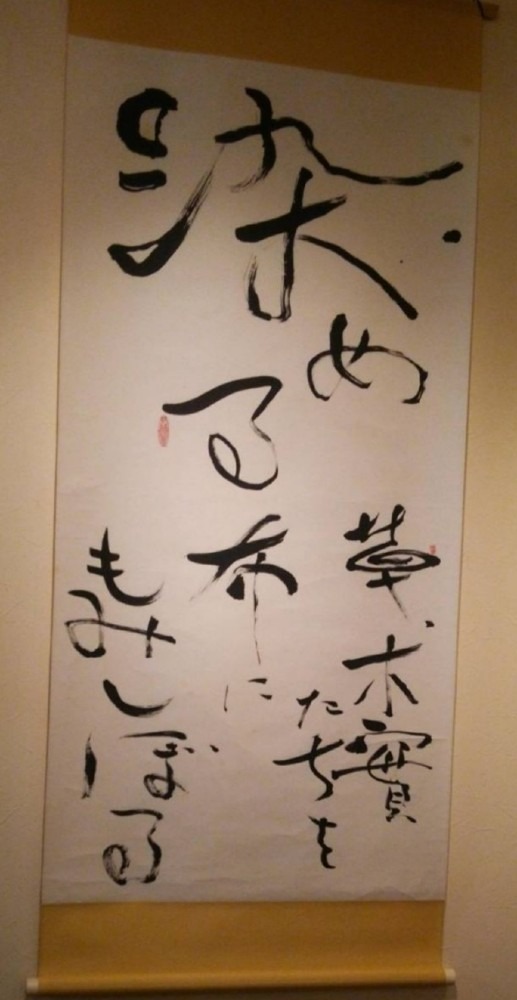 染め
る布に
草木實
たちを
もみしぼる